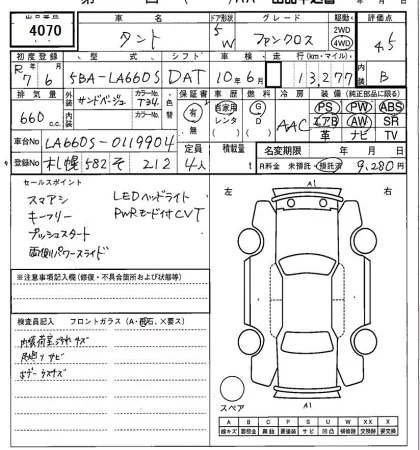 出品番号 車名 ドア形状 グレード 駆動 評価点
4070 タント 5W ファンクロス 2WD 4WD 4.5
初度登録 型式 シフト 車検 走行(km・マイル) 内装
R7年6月 5BA-LA660S DAT 10年6月 13,277 B
排気量 外装 サンドベージュ T34 色替 保証書 車歴 燃料 冷房 装備(純正部品に限る)
660cc 内装 有・無 自家用 レンタ G D AAC PS PW ABS
エアB AW SR
革 ナビ TV
車台No LA660S-0119904 定員 積載量 名変期限 年 月 日
登録No 札幌 582 そ 212 4人 t R料金 未預託・預託済 9,280円
セールスポイント
スマアシ LEDヘッドライト
キーフリー PWRモード付CVT
プッシュスタート
両側パワースライド
※注意事項記入欄(修復・不具合箇所および改造等)
検査員記入 フロントガラス(A・飛石、×要ス)
内装荷室汚れキズ
足廻りサビ
ボデー小キズ
左 右
A1
A1
スペア
A B C P S U W X XX
線キズ 要板金 腐蝕 要塗装 サビ 凹凸 補修跡 要交換 交換跡